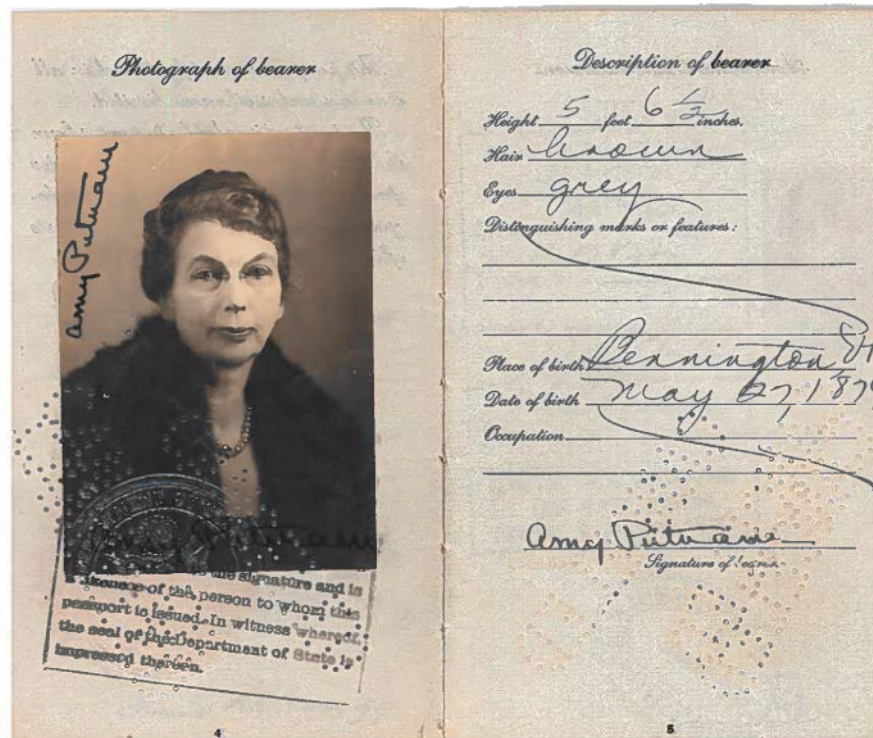 Photograph of bearer
Amy Putnam
Amy Putnam
the signature and is
a likeness of the person to whom this
passport is issued. In witness whereof
the seal of the Department of State is
impressed thereon.
4
Description of bearer
Height 5 feet 6 1/2 inches.
Hair brown
Eyes grey
Distinguishing marks or features:
Place of birth Bennington
Date of birth May 27, 187
Occupation
Amy Putnam
Signature of bearer.
5